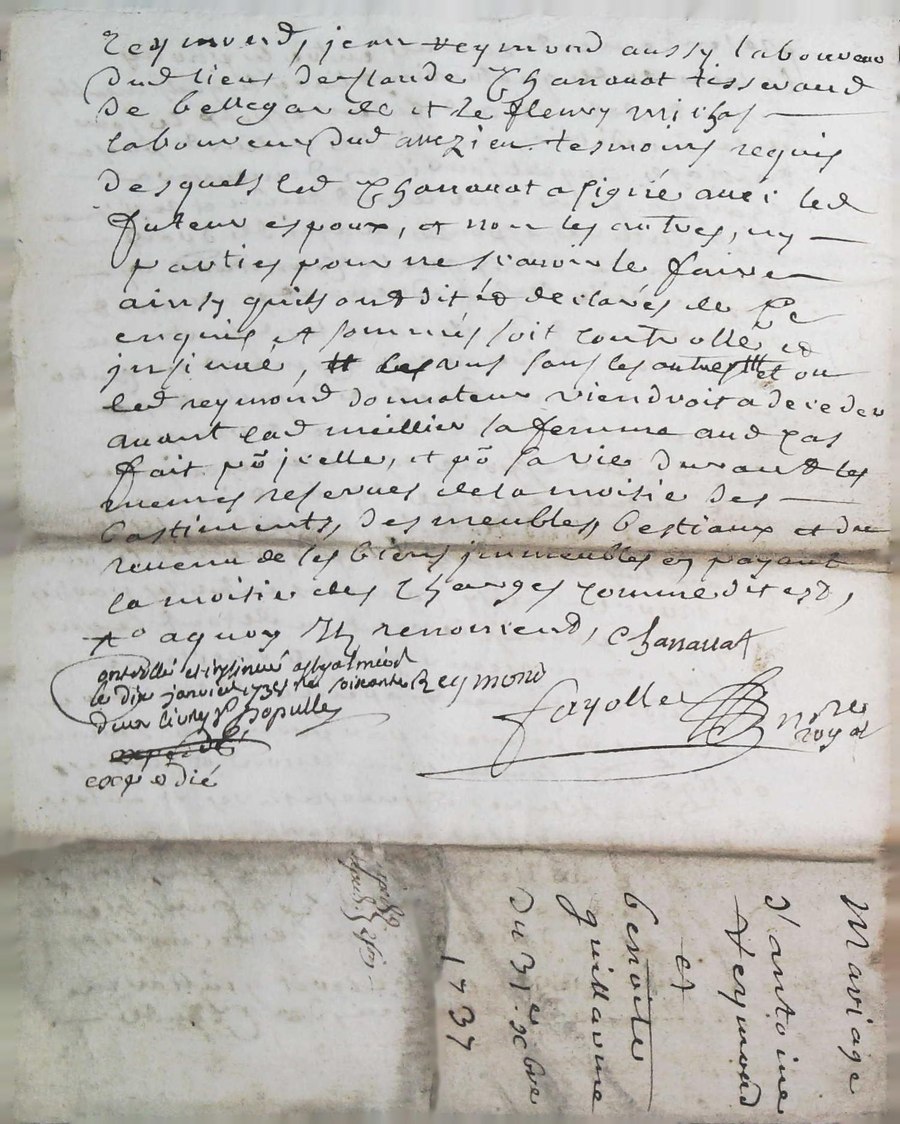 reymond, jean reymond aussy laboureur
dud lieu de Claude Chanauat tisserand
de bellegarde et de fleury michas
laboureur dud auezieu tesmoins requis
desquels led Chanauat a signé auec led
futeur espoux, et non les autres, ny
parties pour ne scauoir le faire
ainsy quils ont dit et declarés de ce
enquis et sommés soit controllé et
jnsinue, les uns sans les autres et ou
led reymond donnateur viendroit a deceder
auant lad meillier sa femme aud cas
fait pō jcelle, et pō sa vie durant les
memes reserues de la moitie des
bastiments, des meubles, bestiaux et du
reuenu de ses biens jmmeubles en payant
la moitie des charges comme dit est,
aquoy renoncent, Chanauat
et jnsinué
le dix janvier 1738 soixante Reymond
deux liures
fayolle nre
royal
expedié
Mariage
d'antoine
reymond
et
benoite
guillarme
du 31e xbre
1737